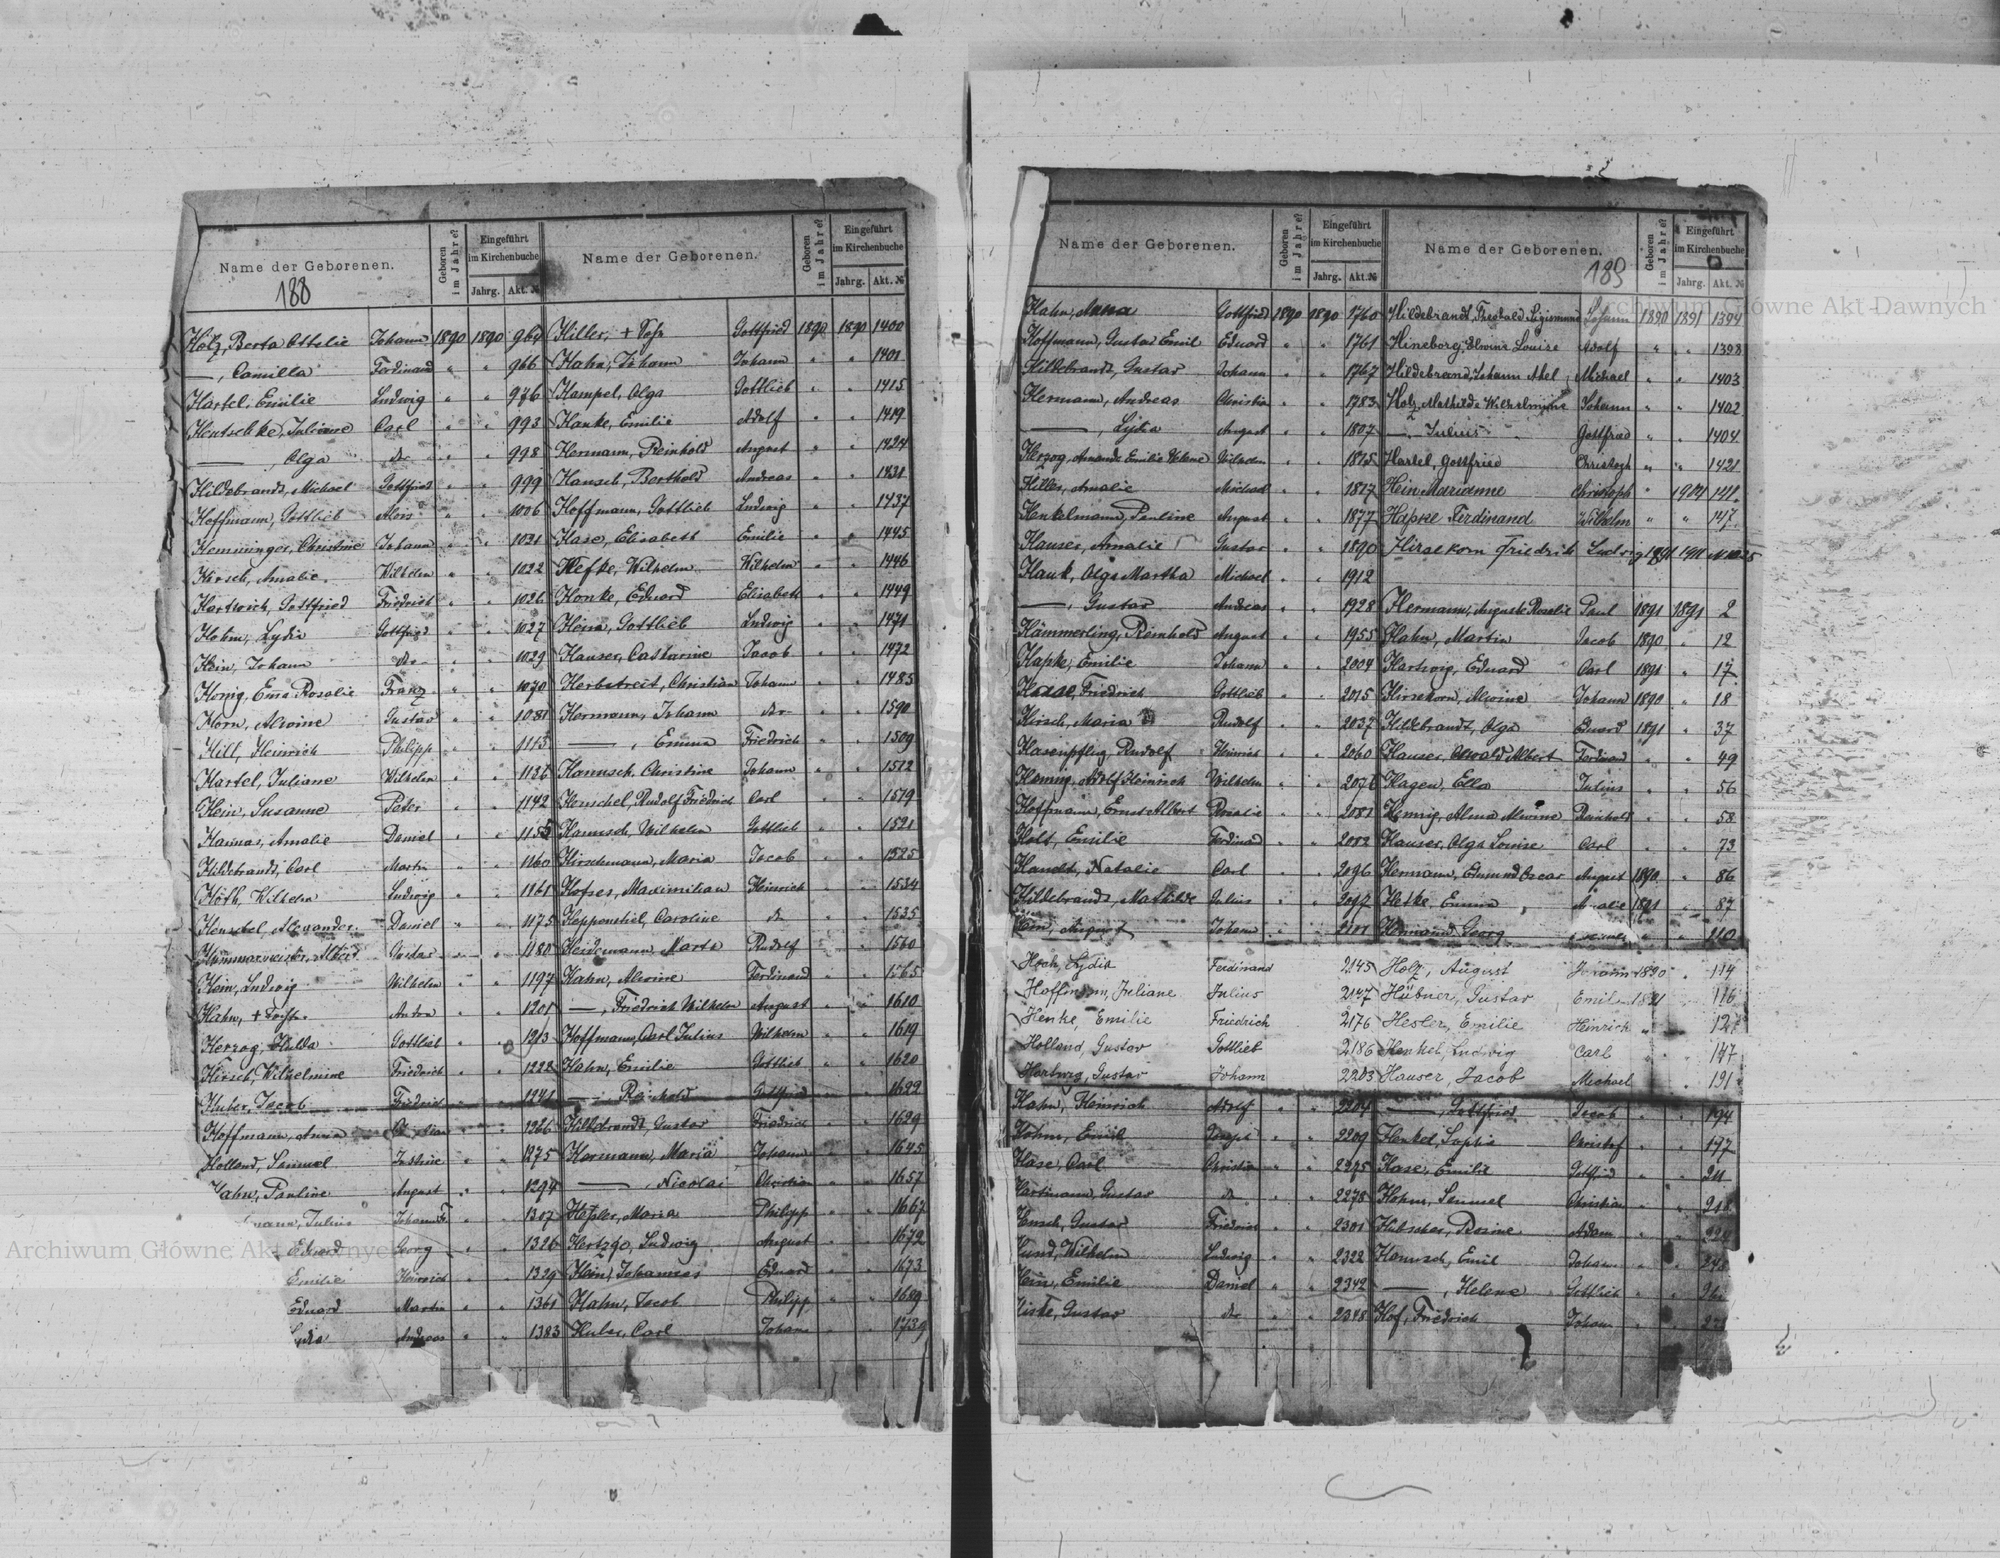 Name der Geborenen.
Geboren im Jahre?
Eingeführt im Kirchenbuche
Jahrg. Akt. №
Name der Geborenen.
Geboren im Jahre?
Eingeführt im Kirchenbuche
Jahrg. Akt. №
188
Holz, Berta Ottilie Johann 1890 1890 964
—, Camilla Ferdinand " " 966
Hartel, Emilie Ludwig " " 976
Hentschke, Juliane Carl " " 993
—, Olga do " " 998
Hildebrandt, Michael Gottfried " " 999
Hoffmann, Gottlieb Alois " " 1006
Hemminger, Christine Johann " " 1021
Hirsch, Amalie Wilhelm " " 1022
Hartwich, Gottfried Friedrich " " 1026
Hohm, Lydia Gottfried " " 1027
Hein, Johann do " " 1029
Honig, Ema Rosalie Franz " " 1070
Horn, Alwine Gustav " " 1081
Hill, Heinrich Philipp " " 1113
Hartel, Juliane Wilhelm " " 1136
Hein, Susanne Peter " " 1142
Hannas, Amalie Daniel " " 1155
Hildebrandt, Carl Martin " " 1160
Höth, Wilhelm Ludwig " " 1161
Henschel, Alexander Daniel " " 1175
Gustav " " 1180
Hein, Ludwig Wilhelm " " 1197
Hahn, + Anton " " 1201
Herzog, Hulda Gottlieb " " 1213
Hirsch, Wilhelmine Friedrich " " 1222
Huber, Jacob Friedrich " " 1241
Hoffmann, Anna 1266
Holland, Samuel Justine " " 1275
Hahn, Pauline August " " 1294
Julius Johann " " 1307
Eduard Georg " " 1326
Emilie Heinrich " " 1329
Eduard Martin " " 1361
Andreas " " 1383
Hiller, + Gottfried 1890 1890 1400
Hahn, Johann Johann " " 1401
Hampel, Olga Gottlieb " " 1415
Hanke, Emilie Adolf " " 1419
Hermann, Reinhold August " " 1424
Hansch, Berthold Andreas " " 1431
Hoffmann, Gottlieb Ludwig " " 1437
Hase, Elisabeth Emilie " " 1445
Hefke, Wilhelm Wilhelm " " 1446
Honke, Eduard Elisabeth " " 1449
Hein, Gottlieb Ludwig " " 1471
Hauser, Catharine Jacob " " 1472
Herbstreit, Christian Johann " " 1485
Hermann, Johann do " " 1590
—, Emma Friedrich " " 1509
Hannsch, Christine Johann " " 1512
Henschel, Rudolf Friedrich Carl " " 1519
Hannsch, Wilhelm Gottlieb " " 1521
Hirschmann, Maria Jacob " " 1525
Maximilian Heinrich " " 1534
Heppenstiel, Caroline do " " 1535
Heidemann, Marta Rudolf " " 1560
Hahn, Alwine Ferdinand " " 1565
—, Friedrich Wilhelm August " " 1610
Hoffmann, Carl Julius Wilhelm " " 1619
Hahn, Emilie Gottlieb " " 1620
—, Reinhold Gottfried " " 1622
Hildebrandt, Gustav Friedrich " " 1629
Hermann, Maria Johann " " 1645
—, Nicolai Christian " " 1657
Heßler, Maria Philipp " " 1667
Ludwig August " " 1672
Hein, Johannes Eduard " " 1673
Hahn, Jacob Philipp " " 1689
Huber, Carl Johann " " 1739
Name der Geborenen.
Geboren im Jahre?
Eingeführt im Kirchenbuche
Jahrg. Akt. №
Name der Geborenen.
Geboren im Jahre?
Eingeführt im Kirchenbuche
Jahrg. Akt. №
189
Hahn, Anna Gottfried 1890 1890 1760
Hoffmann, Gustav Emil Eduard " " 1761
Hildebrandt, Gustav Johann " " 1767
Hermann, Andreas Christian " " 1783
—, Lydia August " " 1807
Herzog, Amanda Emilie Helene Wilhelm " " 1815
Hiller, Amalie Michael " " 1817
Henkelmann, Pauline August " " 1877
Hauser, Amalie Gustav " " 1890
Hauk, Olga Martha Michael " " 1912
—, Gustav Andreas " " 1928
Hämmerling, Reinhold August " " 1955
Hapke, Emilie Johann " " 2004
Haase, Friedrich Gottlieb " " 2015
Hirsch, Maria Rudolf " " 2037
Hasenpflug, Rudolf Heinrich " " 2060
Hennig, Adolf Heinrich Wilhelm " " 2076
Hoffmann, Ernst Albert Rosalie " " 2081
Holt, Emilie Ferdinand " " 2082
Handt, Natalie Carl " " 2096
Hildebrandt, Mathilde Julius " " 2097
Horn, August Johann " " 2101
Hoch, Lydia Ferdinand 2145
Hoffmann, Juliane Julius 2147
Henke, Emilie Friedrich 2176
Holland, Gustav Gottlieb 2186
Hartwig, Gustav Johann 2203
Hahn, Heinrich Adolf " " 2204
Hohm, Emil Joseph " " 2209
Hase, Carl Christian " " 2275
Hartmann, Gustav do " " 2278
Hensch, Gustav Friedrich " " 2301
Hund, Wilhelm Ludwig " " 2322
Hein, Emilie Daniel " " 2342
Gustav do " " 2348
Hildebrandt, Theobald Sigismund Johann 1890 1891 1394
Hineborg, Elwine Louise Adolf " " 1398
Hildebrand, Johann Abel Michael " " 1403
Holz, Mathilde Wilhelmine Johann " " 1402
—, Julius Gottfried " " 1404
Hartel, Gottfried Christoph " " 1421
Hein Marianne Christoph " 1901 141
Hapke Ferdinand Wilhelm " " 147
Hirsekorn Friedrich Ludwig 1891 1911
Hermann, Auguste Rosalie Paul 1891 1891 2
Hahn, Martin Jacob 1890 " 12
Hartwig, Eduard Carl 1891 " 17
Hirsekorn, Alwine Johann 1890 " 18
Hildebrandt, Olga Eduard 1891 " 37
Hauser, Oswald Albert Ferdinand " " 49
Hagen, Ella Julius " " 56
Hennig, Alma Alwine Reinhold " " 58
Hauser, Olga Louise Carl " " 73
Hermann, Edmund Oscar August 1890 " 86
Hetke, Emma Amalie 1891 " 87
Hermann, Georg 110
Holz, August Johann 1890 " 114
Hübner, Gustav Emil 1891 " 116
Hesler, Emilie Heinrich " 12
Henkel, Ludwig Carl " " 147
Hauser, Jacob Michael " 191
—, Gottfried Jacob " " 194
Henkel, Sophie Christof " " 197
Hase, Emilie Gottfried " " 211
Hohm, Samuel Christian " " 218
Hübscher, Rosine Adam " " 224
Hannsch, Emil Johann " "
—, Helene Gottlieb " "
Hof, Friedrich Johann " "
Archiwum Główne Akt Dawnych
Archiwum Główne Akt Dawnych